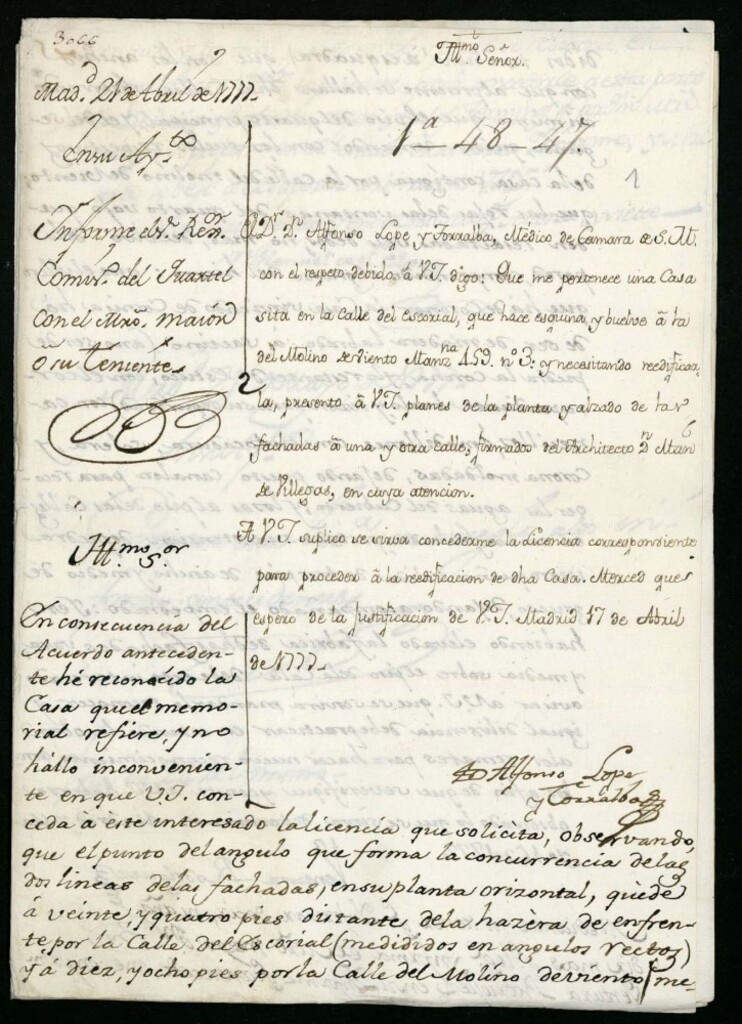 3066
Yll.mo Señor.
Mad.d 21 de Abril de 1777.
1a - 48 - 47.
1
En su Ay.to
Informe el S.r Rex.or
Comis.o del Quartel
con el Mro. maior
ò su teniente
El Dr. Dn. Alfonso Lope y Torralba, Médico de Camara de S. M.
con el respeto debido, á V.I. digo: Que me pertenece una Casa
sita en la Calle del Escorial, que hace esquina y buelve á la
del Molino de viento Manz.na 459. nº 3: y necesitando reedificar-
la, presento á V.I. planes de la planta y alzado de las
fachadas á una y otra calle, firmados del Architecto Dn. Man.l
de Villegas, en cuya atencion.
A V.I. suplico se sirva concederme la Licencia correspondiente
para proceder á la reedificacion de dha Casa. Merced que
espero de la justificacion de V.I. Madrid 17 de Abril
de 1777.
Dr. Alfonso Lope
y Torralba
Yll.mo S.or
En consecuencia del
Acuerdo anteceden-
te hé reconocido la
Casa que el memo-
rial refiere, y no
hállo inconvenien-
te en que V.I. con-
ceda à este interesado la licencia que solicita, observando,
que el punto del angulo que forma la concurrencia de las
dos lineas de las fachadas, en su planta orizontal, quède
á veinte y quatro pies distante de la hazèra de enfren-
te por la Calle del Escorial (medididos en angulos rectos)
y á diez, y ocho pies por la Calle del Molino de viento (me-